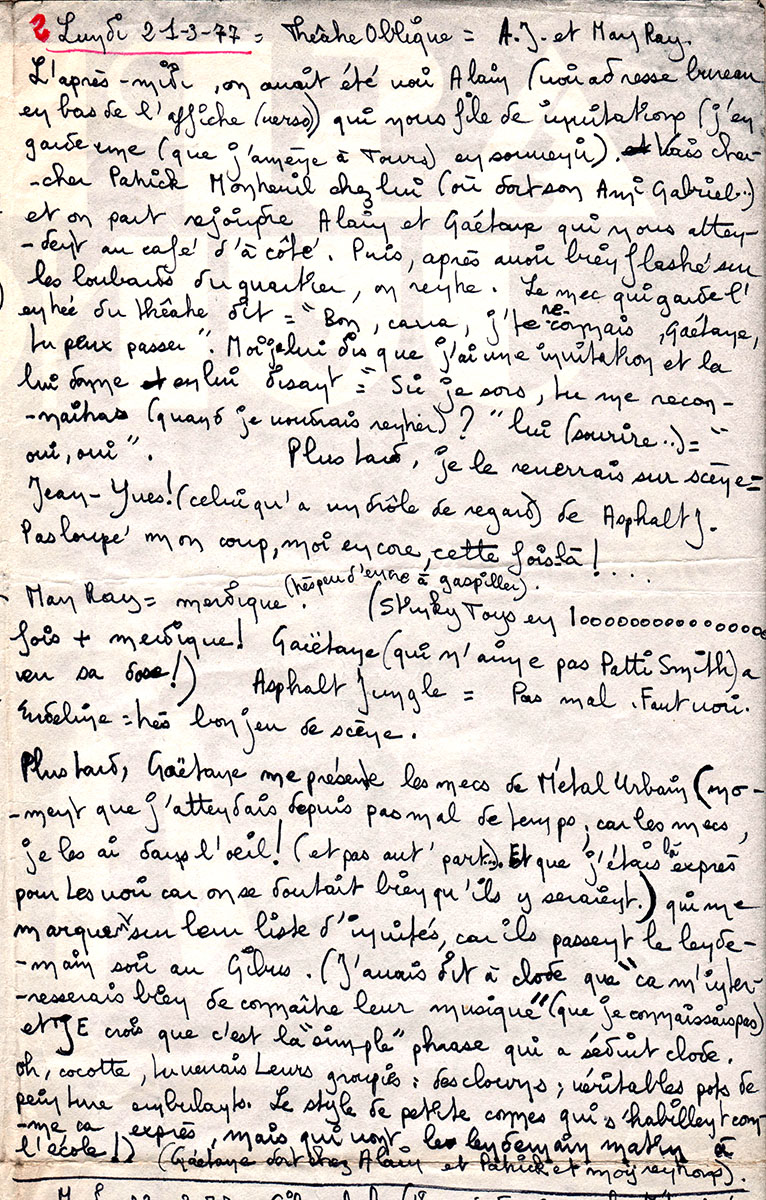 2 Lundi 21-3-77 = Théâtre Oblique = A.J. et Man Ray.
L'après-midi, on avait été voir Alain (voir adresse bureau
en bas de l'affiche (verso)) qui nous file de invitations (j'en
garde une (que j'amène à Tours) en souvenir). Vais cher-
-cher Patrick chez lui (où dort son Ami Gabriel...)
et on part rejoindre Alain et Gaétane qui nous atten-
-dent au café d'à côté. Puis, après avoir bien flashé sur
les loubards du quartier, on rentre. Le mec qui garde l'
entrée du théâtre dit = "Bon, ca va, j'te re-connais, Gaétane,
tu peux passer". Moi je lui dis que j'ai une invitation et la
lui donne en lui disant = "Si je sors, tu me recon-
-naitras (quand je voudrais rentrer)? " lui (sourire..) = "
oui, oui". Plus tard, je le reverrais sur scène =
Jean-Yves! (celui qu'a un drôle de regard) de Asphalt J.
Pas loupé mon coup, moi encore, cette fois-là!....
Man Ray = merdique. (très peu d'encre à gaspiller).
(Stinky Toys en 10000000000000000
fois + merdique! Gaëtane (qui n'aime pas Patti Smith) a
eu sa dose!) Asphalt Jungle = Pas mal. Faut voir.
Eudeline = très bon jeu de scène.
Plus tard, Gaëtane me présente les mecs de Métal Urbain (mo-
-ment que j'attendais depuis pas mal de temps, car les mecs,
je les ai dans l'oeil! (et pas aut' part...). Et que j'étais là exprès
pour Les voir car on se doutait bien qu'ils y seraient.) qui me
marquent sur leur liste d'invités, car ils passent le lende-
-main soir au Gibus. (J'avais dit à clode que "ca m'inter-
-resserais bien de connaître leur musique" (que je connaissais pas)
et JE crois que c'est la "simple" phrase qui a séduit clode.
oh, cocotte, tu verrais Leurs groupies : des clowns ; véritables pots de
peinture ambulants. Le style de petite connes qui s'habillent com-
-me ca exprès, mais qui vont le lendemain matin à
l'école!) (Gaëtane dort chez Alain et Patrick et moi rentrons).